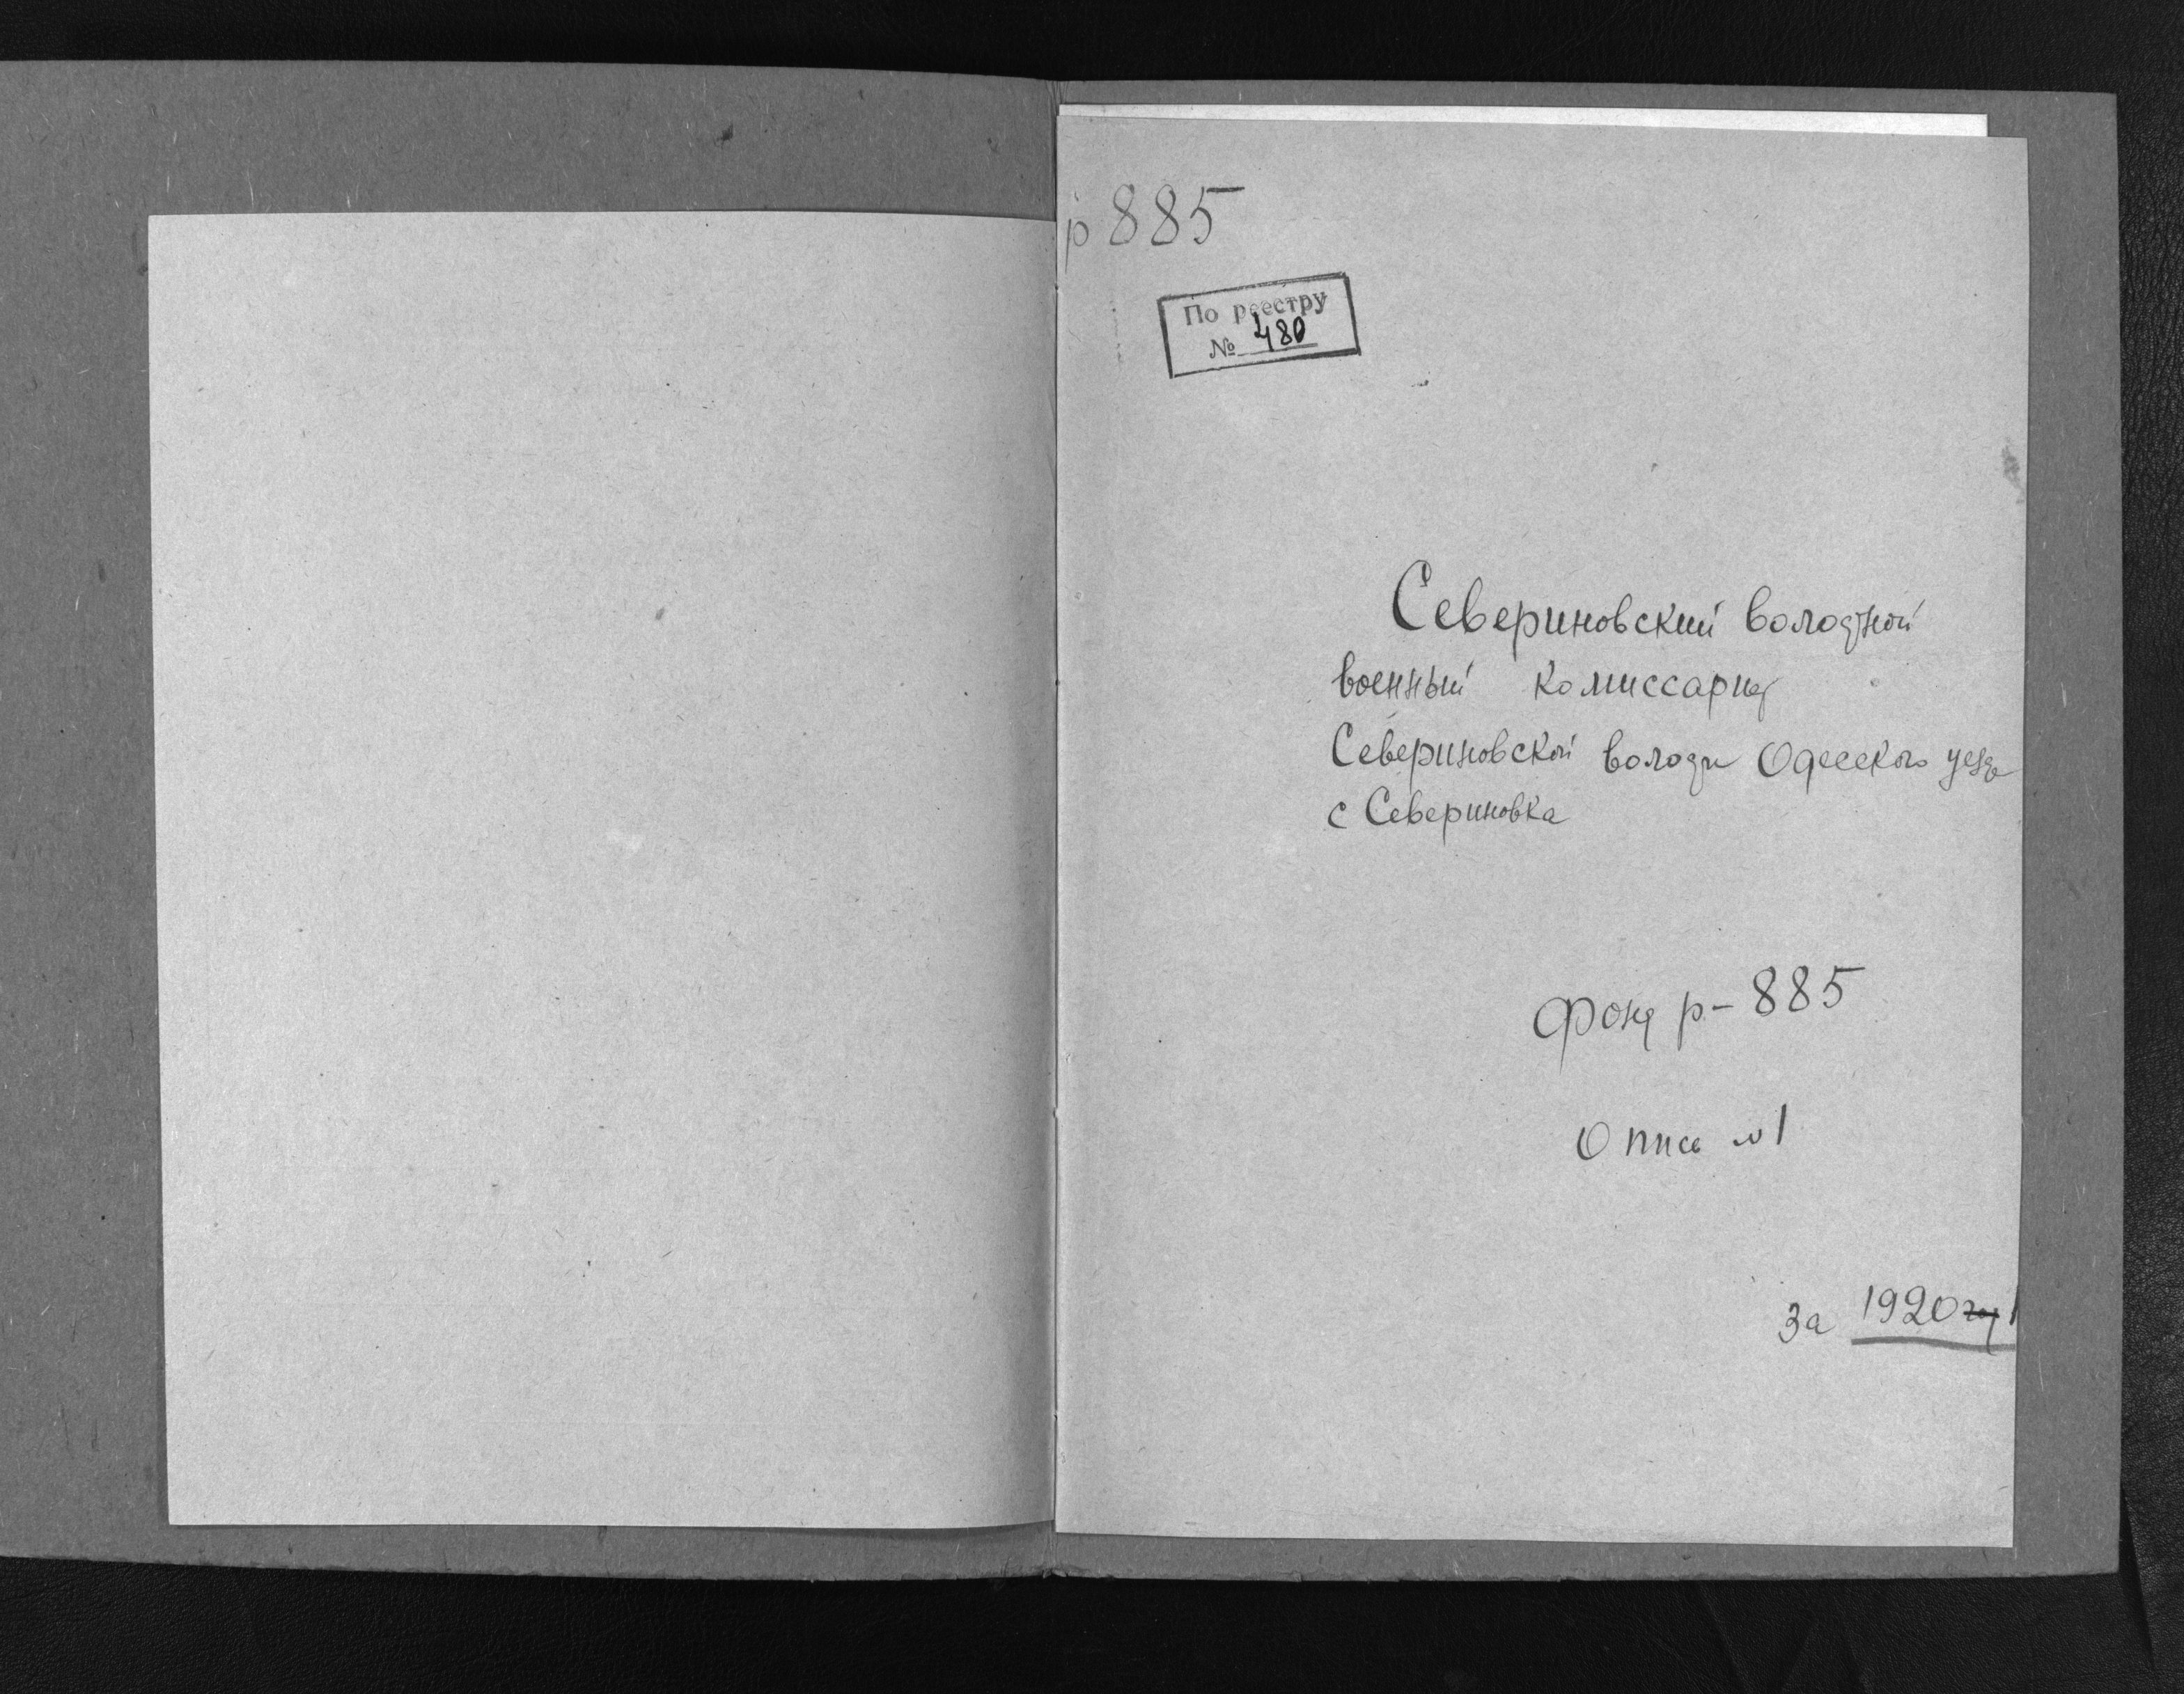 р 885
По реестру
№ 480
Севериновский волостной
военный комиссариат
Севериновской волости Одесского уезда
с Севериновка
Фонд р-885
Опись №1
За 1920